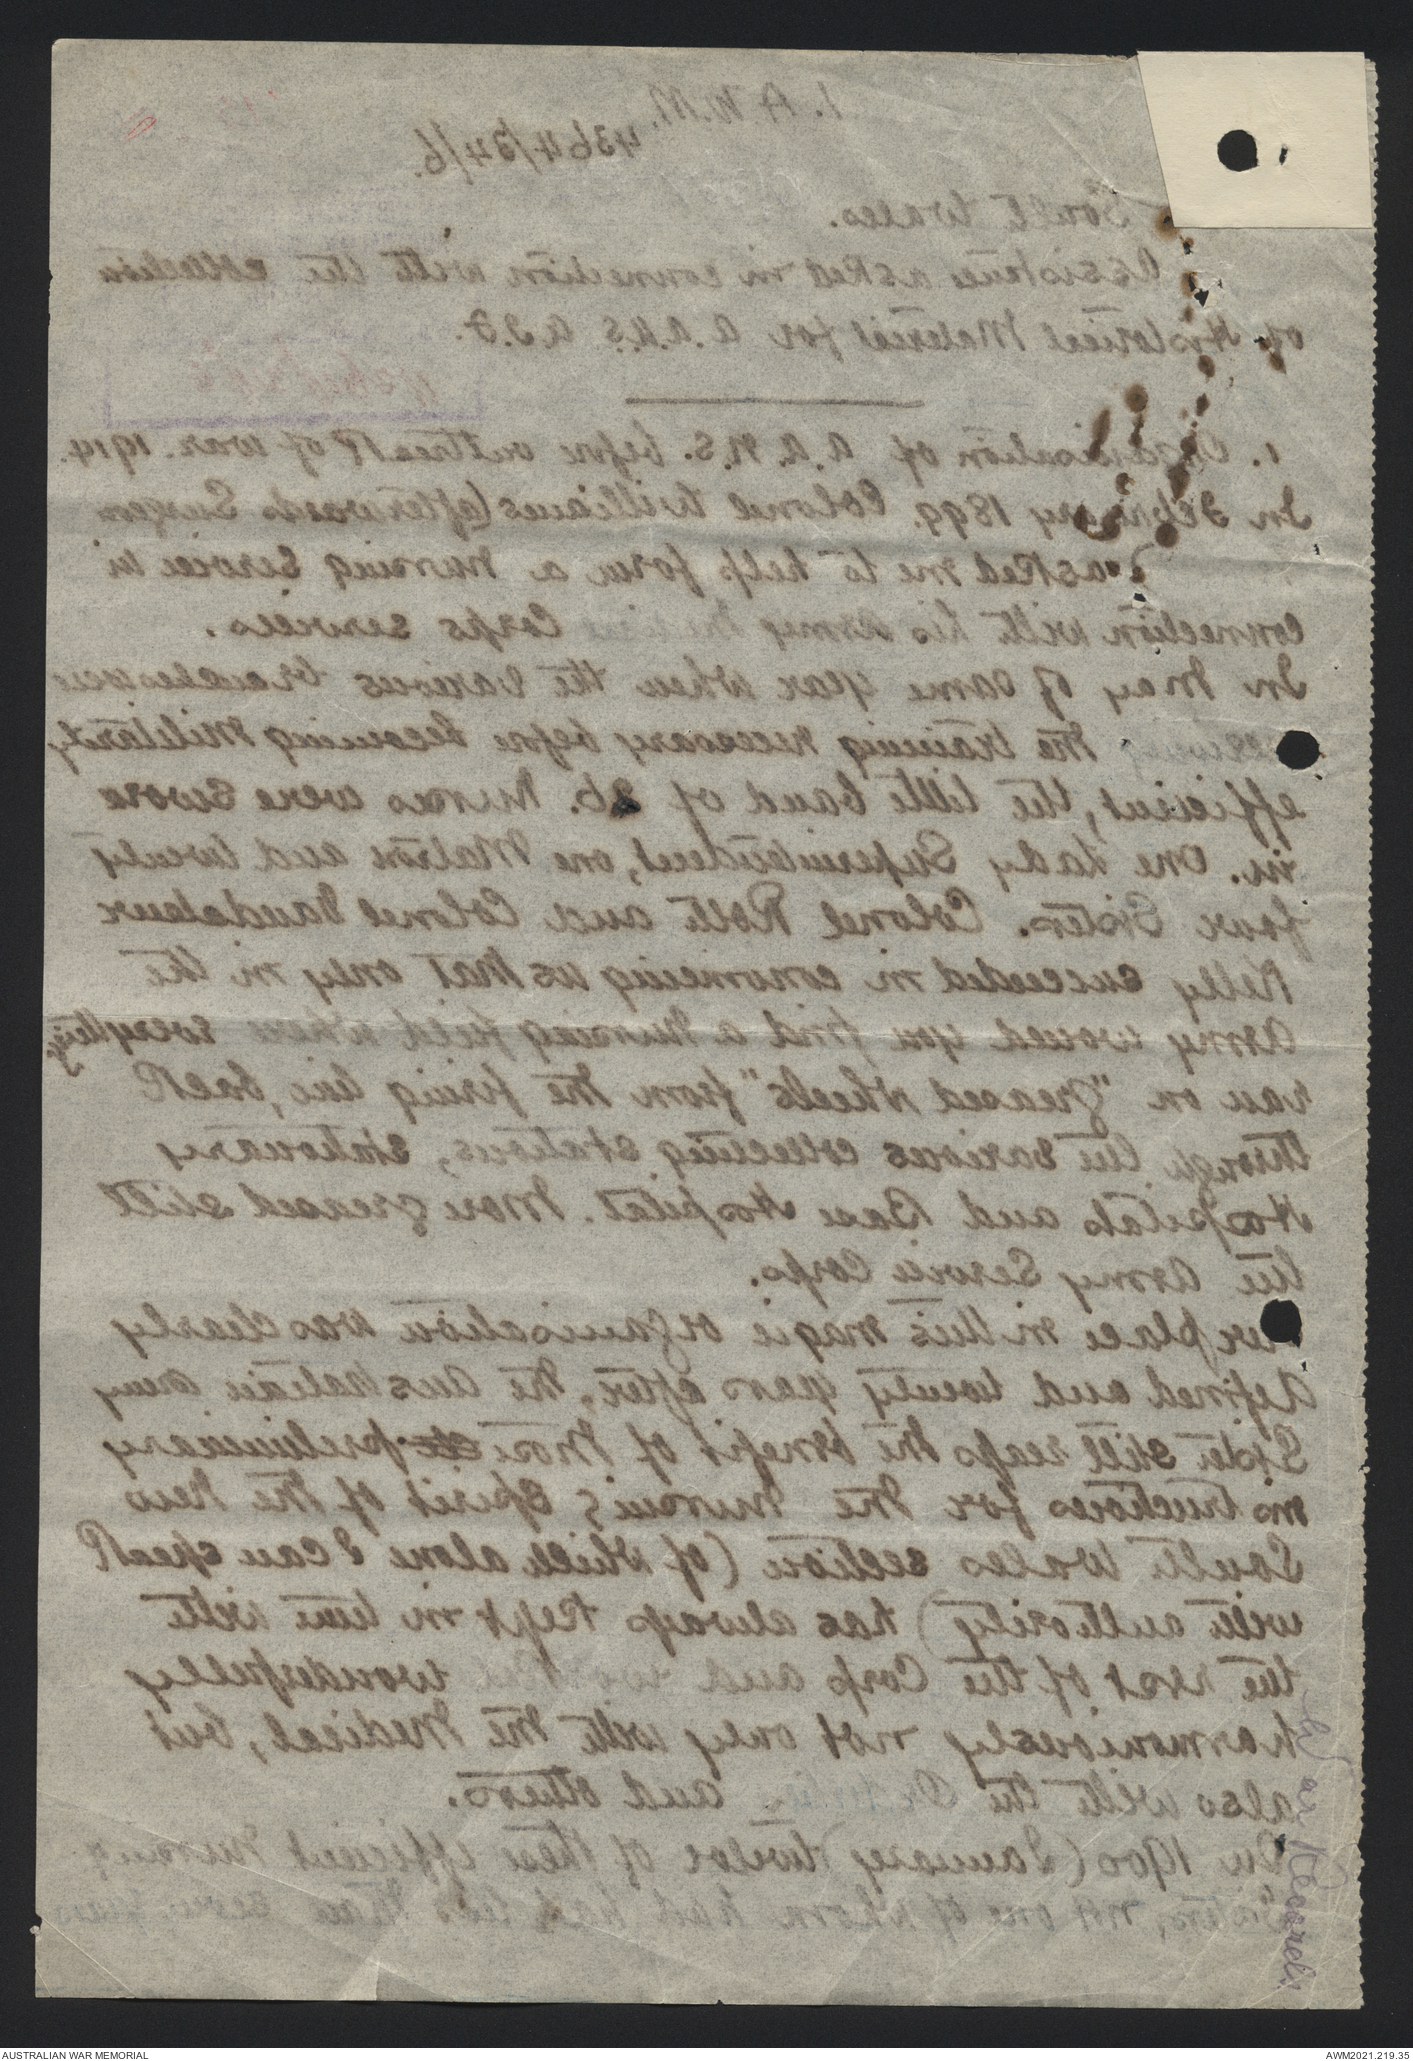 1. A N.M.
4364/24/6.
South Wales.
Assistance asked in connection with the collection
of Historical Material for A.A.N.S. A.I.F.
1. Organisation of A.A.N.S. before outbreak of war. 1914.
In February 1899. Colonel Williams (afterwards Surgeon
asked me to help form a nursing service in
connection with his Army Medical Corps services.
In May of same year when the various branches
the training necessary before becoming Military
efficient, the little band of 26. Nurses were swore
in. One Lady Superintendent, one Matron and twenty
four Sisters. Colonel Roth and Colonel Vandeleur
Kelly succeeded in convincing us that only in the
Army would you find a nursing field where everything
ran on "greased wheels" from the firing line, back
through the various collecting stations, stationary
Hospitals and Base Hospital. More greased still
the Army Service Corps.
Our place in this magic organisation was clearly
defined and twenty years after, the Australian Army
Sister still reaps the benefit of those preliminary
instructions for the nursing spirit of the New
South Wales section (of which alone I can speak
with authority) has always kept in line with
the rest of the Corps and worked wonderfully
harmoniously not only with the Medical, but
also with the and others.
In 1900 (January) twelve of these efficient Nursing
Sisters, not one of whom had had less than seven years
War Records
AUSTRALIAN WAR MEMORIAL
AWM2021.219.35